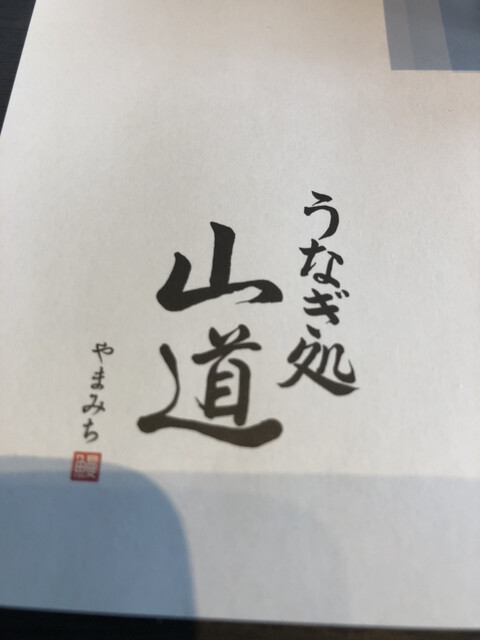 うなぎ処
山道
やまみち
鰻